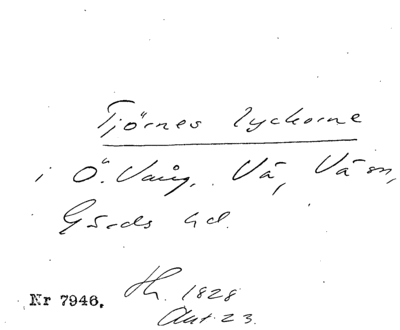 Tjörnes lyckorne
i Ö. Vång. Vä, Vä sn,
Gärds hd.
Nr 7946. Th. 1828
Akt. 23.